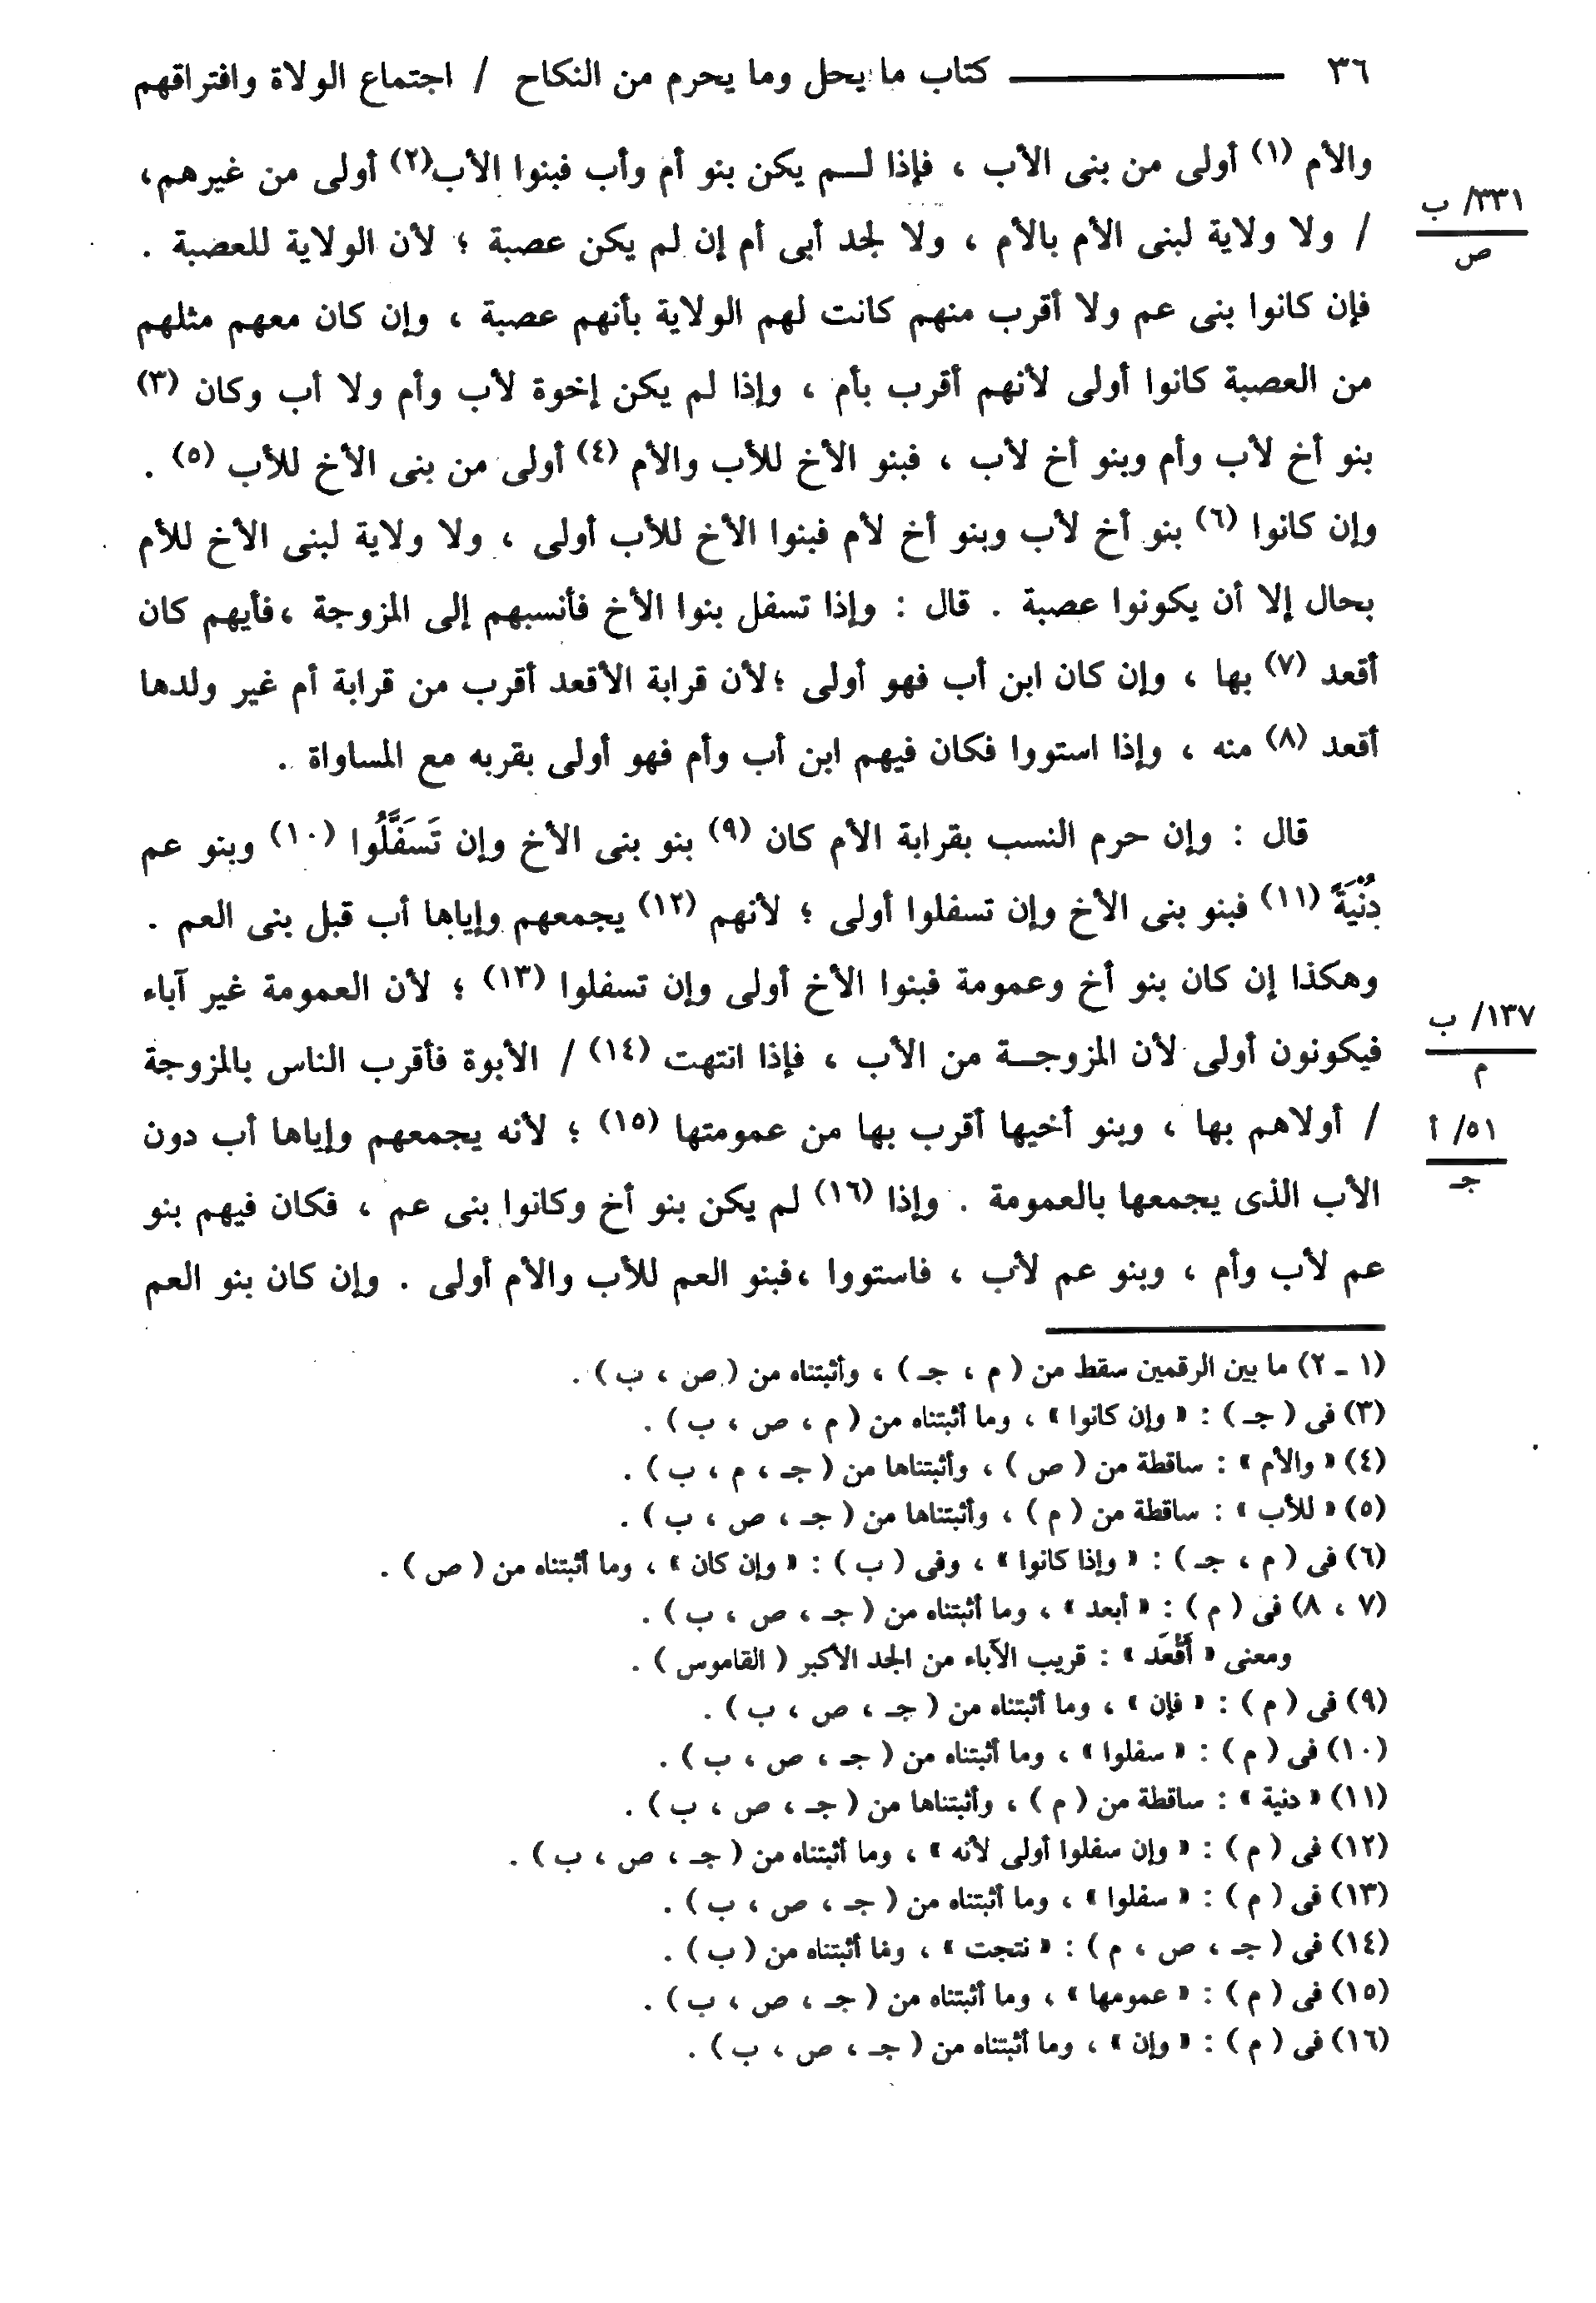 ٣٦ ــــــــــ كتاب ما يحل وما يحرم من النكاح / اجتماع الولاة وافتراقهم
والأم (١) أولى من بنى الأب ، فإذا لـــم يكن بنو أم وأب فبنوا الأب(٢) أولى من غيرهم،
٣٣١/ ب
ص
/ ولا ولاية لبنى الأم بالأم ، ولا لجد أبى أم إن لم يكن عصبة ؛ لأن الولاية للعصبة .
فإن كانوا بنى عم ولا أقرب منهم كانت لهم الولاية بأنهم عصبة ، وإن كان معهم مثلهم
من العصبة كانوا أولى لأنهم أقرب بأم ، وإذا لم يكن إخوة لأب وأم ولا أب وكان (٣)
بنو أخ لأب وأم وبنو أخ لأب ، فبنو الأخ للأب والأم (٤) أولى من بنى الأخ للأب (٥) .
وإن كانوا (٦) بنو أخ لأب وبنو أخ لأم فبنوا الأخ للأب أولى ، ولا ولاية لبنى الأخ للأم
بحال إلا أن يكونوا عصبة . قال : وإذا تسفل بنوا الأخ فأنسبهم إلى المزوجة ،فأيهم كان
أقعد (٧) بها ، وإن كان ابن أب فهو أولى ؛لأن قرابة الأقعد أقرب من قرابة أم غير ولدها
أقعد (٨) منه ، وإذا استووا فكان فيهم ابن أب وأم فهو أولى بقربه مع المساواة .
قال : وإن حرم النسب بقرابة الأم كان (٩) بنو بنى الأخ وإن تَسَفَّلُوا (١٠) وبنو عم
دُِنْيَةً (١١) فبنو بنى الأخ وإن تسفلوا أولى ؛ لأنهم (١٢) يجمعهم وإياها أب قبل بنى العم .
وهكذا إن كان بنو أخ وعمومة فبنوا الأخ أولى وإن تسفلوا (١٣) ؛ لأن العمومة غير آباء
١٣٧/ ب
م
فيكونون أولى لأن المزوجـــة من الأب ، فإذا انتهت (١٤) / الأبوة فأقرب الناس بالمزوجة
٥١/ أ
جـ
/ أولاهم بها ، وبنو أخيها أقرب بها من عمومتها (١٥) ؛ لأنه يجمعهم وإياها أب دون
الأب الذى يجمعها بالعمومة . وإذا (١٦) لم يكن بنو أخ وكانوا بنى عم ، فكان فيهم بنو
عم لأب وأم ، وبنو عم لأب ، فاستووا ،فبنو العم للأب والأم أولى . وإن كان بنو العم
(١ ـ ٢) ما بين الرقمين سقط من ( م ، جـ ) ، وأثبتناه من ( ص ، ب ) .
(٣) فى ( جـ ) : « وإن كانوا » ، وما أثبتناه من ( م ، ص ، ب ) .
(٤) « والأم » : ساقطة من ( ص ) ، وأثبتناها من ( جـ ، م ، ب ) .
(٥) « للأب » : ساقطة من ( م ) ، وأثبتناها من ( جـ ، ص ، ب ) .
(٦) فى ( م ، جـ ) : « وإذا كانوا » ، وفى ( ب ) : « وإن كان » ، وما أثبتناه من ( ص ) .
(٧ ، ٨) فى ( م ) : « أبعد » ، وما أثبتناه من ( جـ ، ص ، ب ) .
ومعنى « أَقْعَد » : قريب الآباء من الجد الأكبر ( القاموس ) .
(٩) فى ( م ) : « فإن » ، وما أثبتناه من ( جـ ، ص ، ب ) .
(١٠) فى ( م ) : « سفلوا » ، وما أثبتناه من ( جـ ، ص ، ب ) .
(١١) « دنية » : ساقطة من ( م ) ، وأثبتناها من ( جـ ، ص ، ب ) .
(١٢) فى ( م ) : « وإن سفلوا أولى لأنه » ، وما أثبتناه من ( جـ ، ص ، ب ) .
(١٣) فى ( م ) : « سفلوا » ، وما أثبتناه من ( جـ ، ص ، ب ) .
(١٤) فى ( جـ ، ص ، م ) : « نتجت » ، وما أثبتناه من ( ب ) .
(١٥) فى ( م ) : « عمومها » ، وما أثبتناه من ( جـ ، ص ، ب ) .
(١٦) فى ( م ) : « وإن » ، وما أثبتناه من ( جـ ، ص ، ب ) .